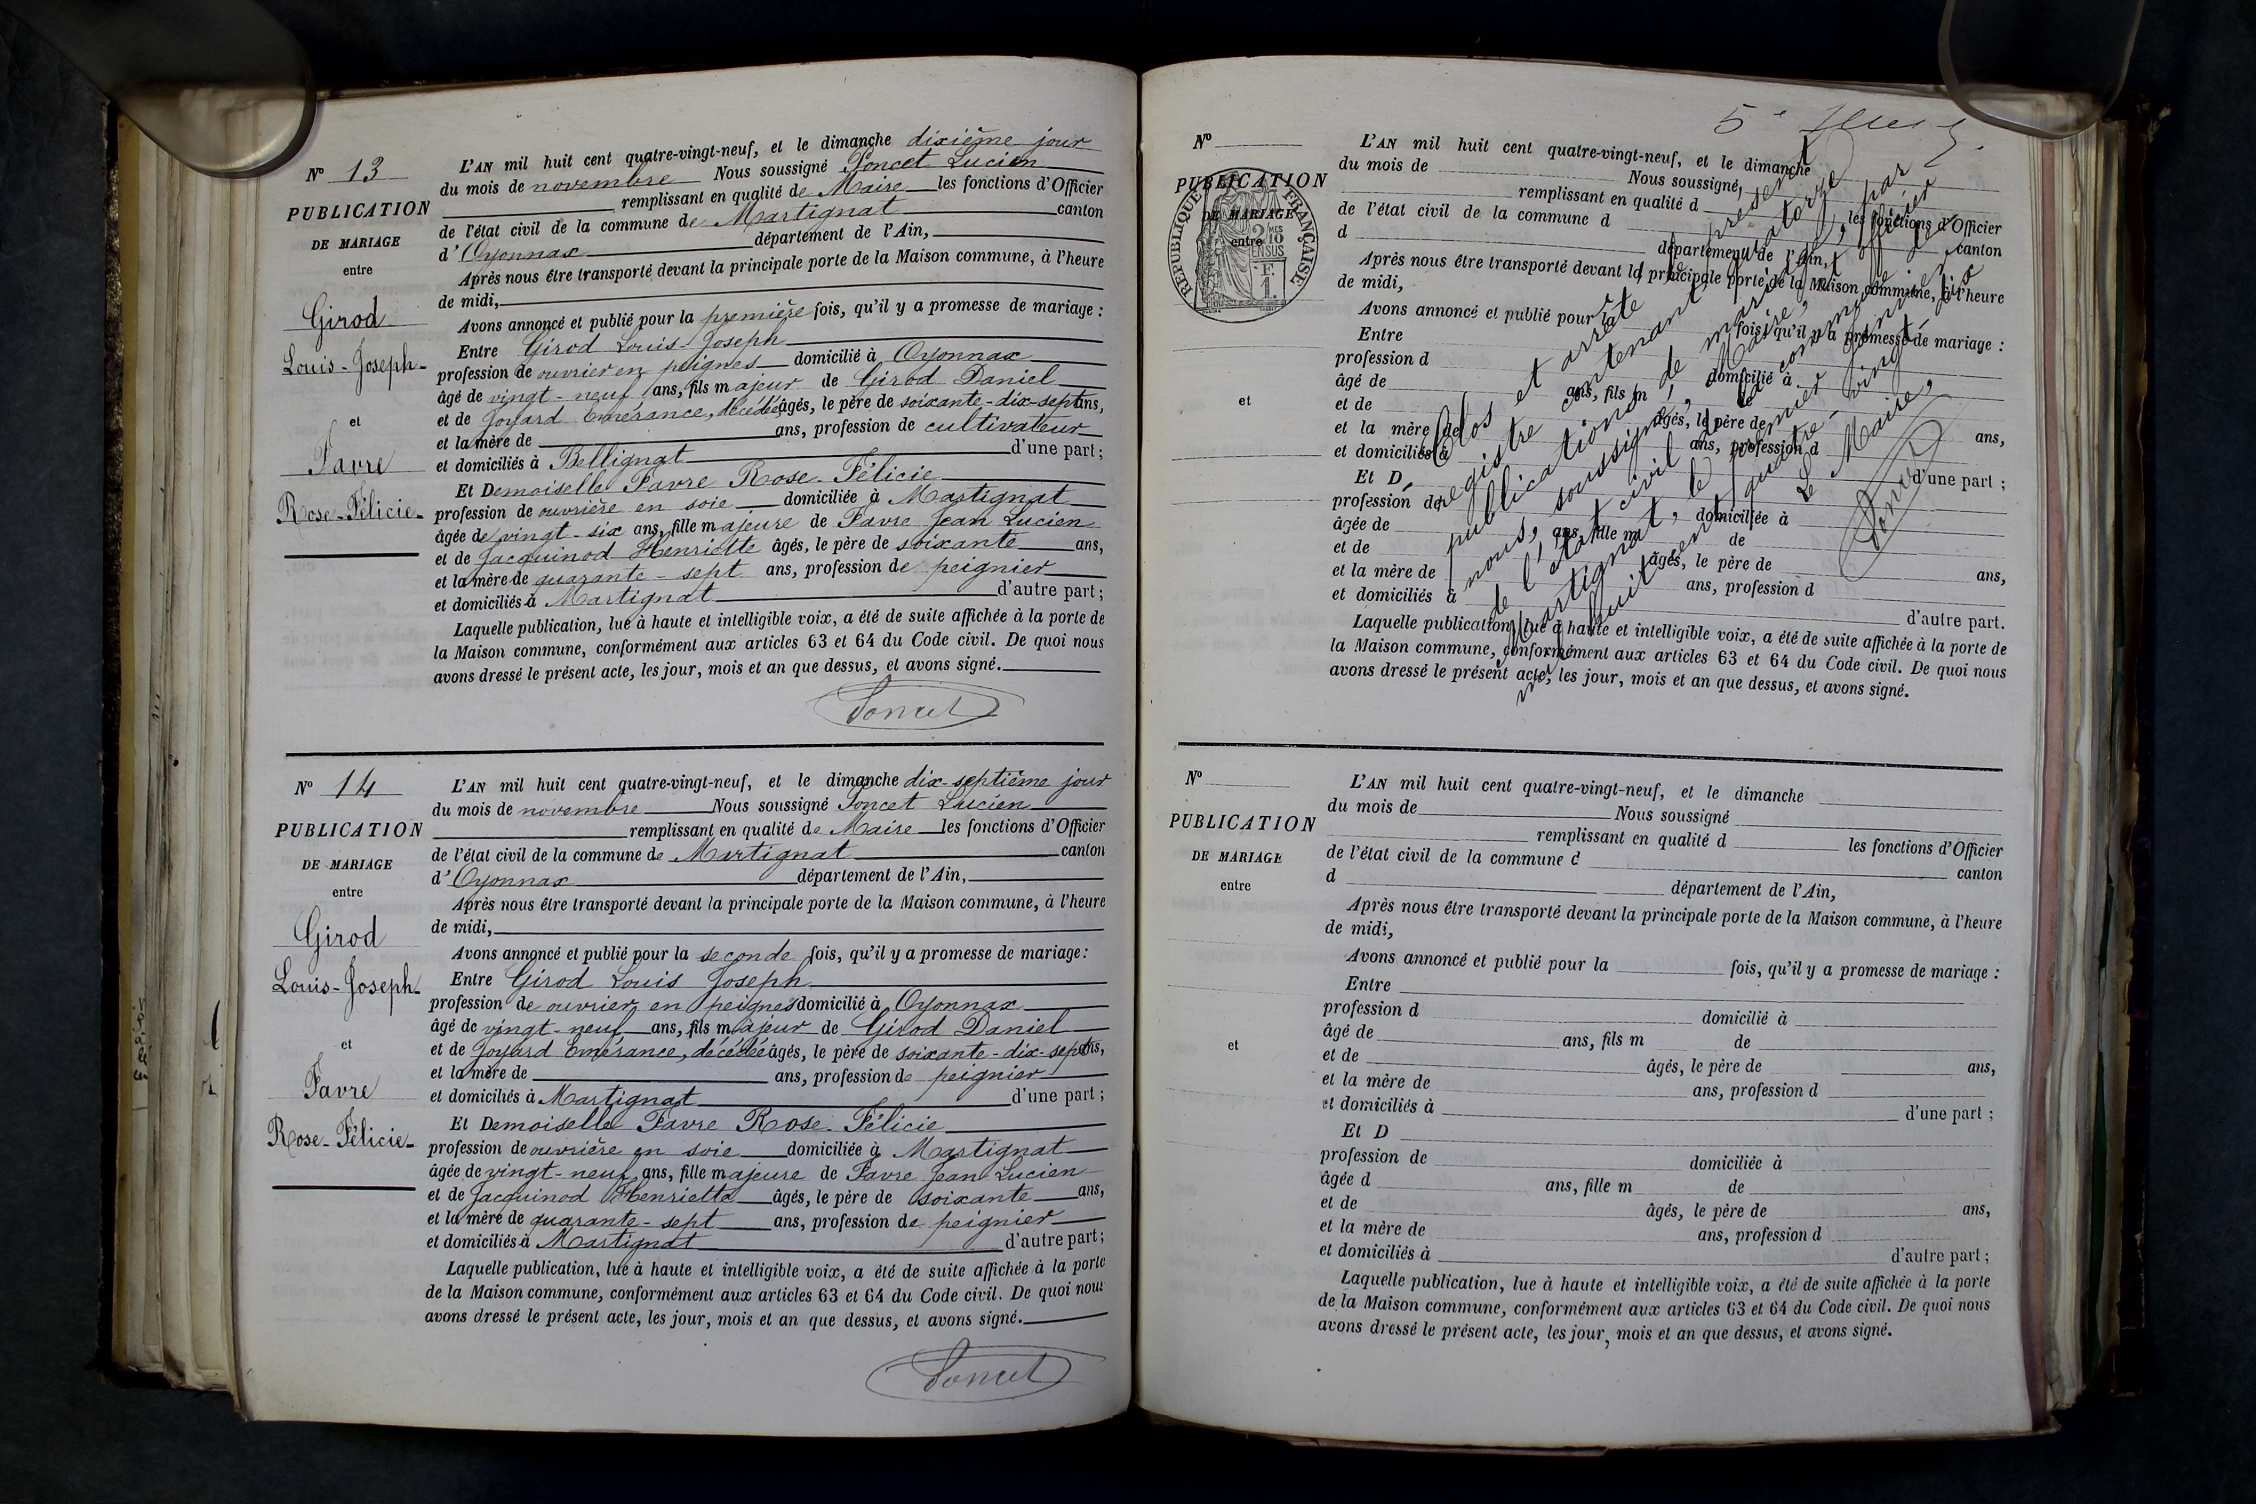 N° 13
PUBLICATION
DE MARIAGE
entre
Girod
Louis-Joseph
et
Favre
Rose-Félicie
L'AN mil huit cent quatre-vingt-neuf, et le dimanche dixième jour
du mois de novembre Nous soussigné Poncet Lucien
remplissant en qualité de Maire les fonctions d'Officier
de l'état civil de la commune de Martignat canton
d'Oyonnax département de l'Ain,
Après nous être transporté devant la principale porte de la Maison commune, à l'heure
de midi,
Avons annoncé et publié pour la première fois, qu'il y a promesse de mariage :
Entre Girod Louis Joseph
profession de ouvrier en peignes domicilié à Oyonnax
âgé de vingt-neuf ans, fils majeur de Girod Daniel
et de Joyard Emérance, décédée âgés, le père de soixante-dix-sept ans,
et la mère de ans, profession de cultivateur
et domiciliés à Bellignat d'une part ;
Et Demoiselle Favre Rose-Félicie
profession de ouvrière en soie domiciliée à Martignat
âgée de vingt-six ans, fille majeure de Favre Jean Lucien
et de Jacquinod Henriette âgés, le père de soixante ans,
et la mère de quarante-sept ans, profession de peignier
et domiciliés à Martignat d'autre part ;
Laquelle publication, lue à haute et intelligible voix, a été de suite affichée à la porte de
la Maison commune, conformément aux articles 63 et 64 du Code civil. De quoi nous
avons dressé le présent acte, les jour, mois et an que dessus, et avons signé.
Poncet
N° 14
PUBLICATION
DE MARIAGE
entre
Girod
Louis-Joseph
et
Favre
Rose-Félicie
L'AN mil huit cent quatre-vingt-neuf, et le dimanche dix-septième jour
du mois de novembre Nous soussigné Poncet Lucien
remplissant en qualité de Maire les fonctions d'Officier
de l'état civil de la commune de Martignat canton
d'Oyonnax département de l'Ain,
Après nous être transporté devant la principale porte de la Maison commune, à l'heure
de midi,
Avons annoncé et publié pour la seconde fois, qu'il y a promesse de mariage :
Entre Girod Louis Joseph
profession de ouvrier en peignes domicilié à Oyonnax
âgé de vingt-neuf ans, fils majeur de Girod Daniel
et de Joyard Emérance, décédée âgés, le père de soixante-dix-sept ans,
et la mère de ans, profession de peignier
et domiciliés à Martignat d'une part ;
Et Demoiselle Favre Rose-Félicie
profession de ouvrière en soie domiciliée à Martignat
âgée de vingt-neuf ans, fille majeure de Favre Jean Lucien
et de Jacquinod Henriette âgés, le père de soixante ans,
et la mère de quarante-sept ans, profession de peignier
et domiciliés à Martignat d'autre part ;
Laquelle publication, lue à haute et intelligible voix, a été de suite affichée à la porte
de la Maison commune, conformément aux articles 63 et 64 du Code civil. De quoi nous
avons dressé le présent acte, les jour, mois et an que dessus, et avons signé.
Poncet
5e
N°
PUBLICATION
DE MARIAGE
entre
RÉPUBLIQUE FRANÇAISE
et
L'AN mil huit cent quatre-vingt-neuf, et le dimanche
du mois de Nous soussigné,
remplissant en qualité d les fonctions d'Officier
de l'état civil de la commune d canton
d département de l'Ain,
Après nous être transporté devant la principale porte de la Maison commune, à l'heure
de midi,
Avons annoncé et publié pour la fois, qu'il y a promesse de mariage :
Entre
profession d domicilié à
âgé de ans, fils m de
et de âgés, le père de ans,
et la mère de ans, profession d
et domiciliés à d'une part ;
Et D
profession de domiciliée à
âgée de ans, fille m de
et de âgés, le père de ans,
et la mère de ans, profession d
et domiciliés à d'autre part.
Laquelle publication, lue à haute et intelligible voix, a été de suite affichée à la porte de
la Maison commune, conformément aux articles 63 et 64 du Code civil. De quoi nous
avons dressé le présent acte, les jour, mois et an que dessus, et avons signé.
Clos et arrêté le présent
registre contenant quatorze
publications de mariage, par
nous, soussigné, Maire, officier
de l'état civil de la commune de
Martignat, le premier janvier
mil huit cent quatre-vingt-dix
Le Maire,
Poncet
N°
PUBLICATION
DE MARIAGE
entre
et
L'AN mil huit cent quatre-vingt-neuf, et le dimanche
du mois de Nous soussigné
remplissant en qualité d les fonctions d'Officier
de l'état civil de la commune d canton
d département de l'Ain,
Après nous être transporté devant la principale porte de la Maison commune, à l'heure
de midi,
Avons annoncé et publié pour la fois, qu'il y a promesse de mariage :
Entre
profession d domicilié à
âgé de ans, fils m de
et de âgés, le père de ans,
et la mère de ans, profession d
et domiciliés à d'une part ;
Et D
profession de domiciliée à
âgée d ans, fille m de
et de âgés, le père de ans,
et la mère de ans, profession d
et domiciliés à d'autre part ;
Laquelle publication, lue à haute et intelligible voix, a été de suite affichée à la porte
de la Maison commune, conformément aux articles 63 et 64 du Code civil. De quoi nous
avons dressé le présent acte, les jour, mois et an que dessus, et avons signé.